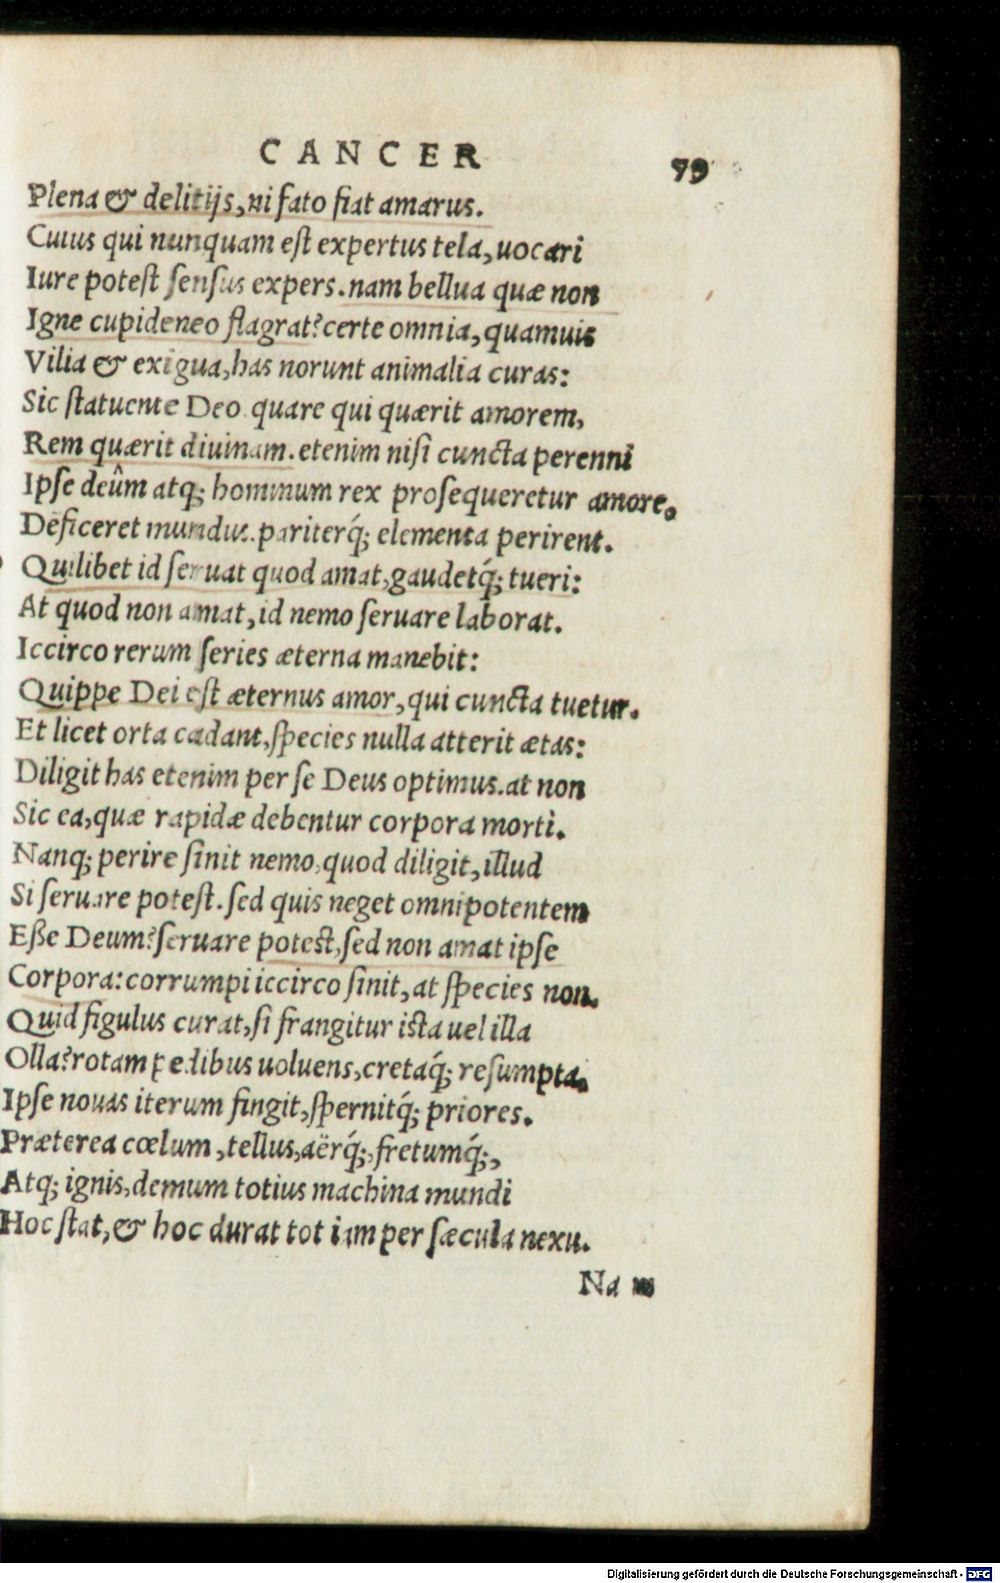 CANCER
79
Plena & delitijs, ni fato fiat amarus.
Cuius qui nunquam est expertus tela, uocari
Iure potest sensus expers. nam bellua quæ non
Igne cupideneo flagrat? certe omnia, quamuis
Vilia & exigua, has norunt animalia curas:
Sic statuente Deo. quare qui quærit amorem,
Rem quærit diuinam. etenim nisi cuncta perenni
Ipse deûm atq; hominum rex prosequeretur amore,
Deficeret mundus. pariterq́; elementa perirent.
Quilibet id seruat quod amat, gaudetq́; tueri:
At quod non amat, id nemo seruare laborat.
Iccirco rerum series æterna manebit:
Quippe Dei est æternus amor, qui cuncta tuetur.
Et licet orta cadant, species nulla atterit ætas:
Diligit has etenim per se Deus optimus. at non
Sic ea, quæ rapidæ debentur corpora morti.
Nanq; perire sinit nemo, quod diligit, illud
Si seruare potest. sed quis neget omnipotentem
Eße Deum? seruare potest, sed non amat ipse
Corpora: corrumpi iccirco sinit, at species non.
Quid figulus curat, si frangitur ista uel illa
Olla? rotam pedibus uoluens, cretaq́; resumpta,
Ipse nouas iterum fingit, spernitq́; priores.
Præterea cœlum, tellus, aërq́;, fretumq́;,
Atq; ignis, demum totius machina mundi
Hoc stat, & hoc durat tot iam per sæcula nexu.
Nam
Digitalisierung gefördert durch die Deutsche Forschungsgemeinschaft - DFG